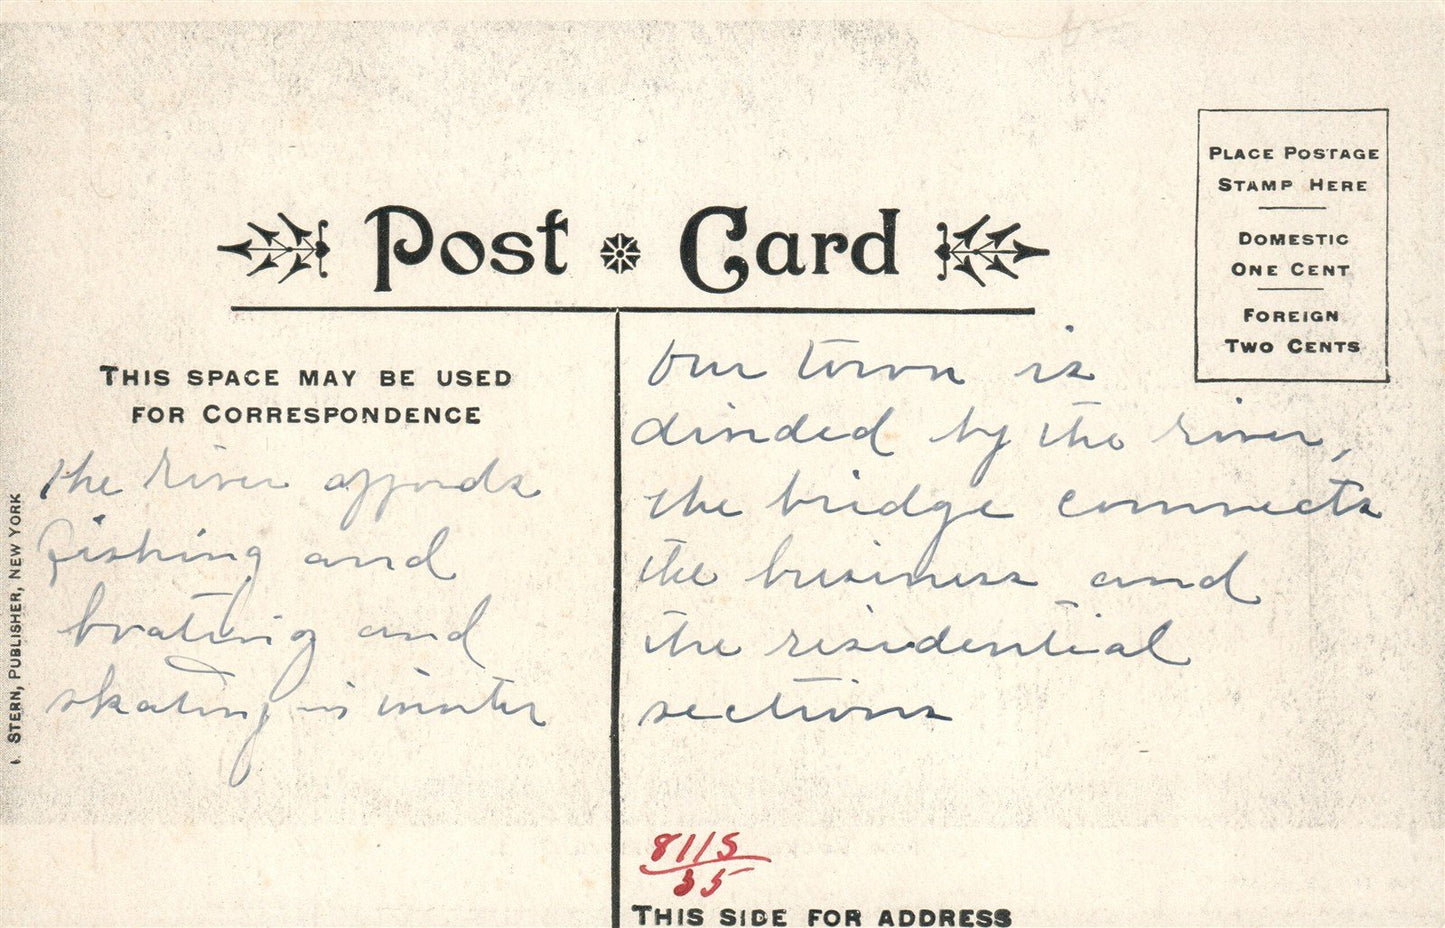 Post Card
PLACE POSTAGE
STAMP HERE
DOMESTIC
ONE CENT
FOREIGN
TWO CENTS
THIS SPACE MAY BE USED
FOR CORRESPONDENCE
the river affords
fishing and
boating and
skating in winter
Our town is
divided by the river,
the bridge connects
the business and
the residential
sections
STERN, PUBLISHER, NEW YORK
8115
35
THIS SIDE FOR ADDRESS